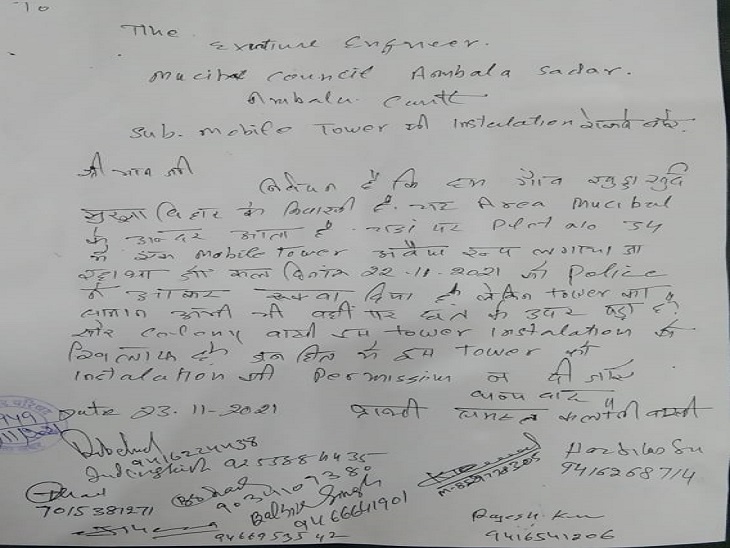 To
The
Exutiure Engineer.
Mucibal Council Ambala Sadar.
Ambala Cantt
Sub. Mobile Tower की Instalation रोकने बारे.
श्री मान जी
निवेदन है कि हम गाँव खुड्डा खुर्द
सुरक्षा विहार के निवासी है. यह Area Mucibal
के अन्दर आता है. यहां पर Plot no 34
में एक Mobile Tower अवैध रूप लगाया जा
रहा था जो कल दिनांक 22-11-2021 को Police
ने आकर रूकवा दिया है लेकिन Tower का
सामान अभी भी वहीं पर छत के उपर पड़ा है
और Colony वासी इस Tower Instalation के
खिलाफ है जन हित में इस Tower की
Instalation की Permission न दी जाये
धन्यवाद
Date 23.11-2021 प्रार्थी समस्त कलोनी वासी
9416224438
9253884435
Harbilas
9416268714
7015381271
Balbir Singh
9466641901
Rajesh Kumar
9416541206
9466953542